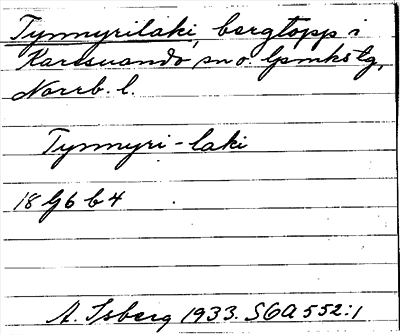 Tynnyrilaki, bergtopp i
Karesuando sn o. lpmkstg,
Norrb. l.
Tynnyri-laki
18 G6 b 4
A. Isberg 1933. SGA 552:1